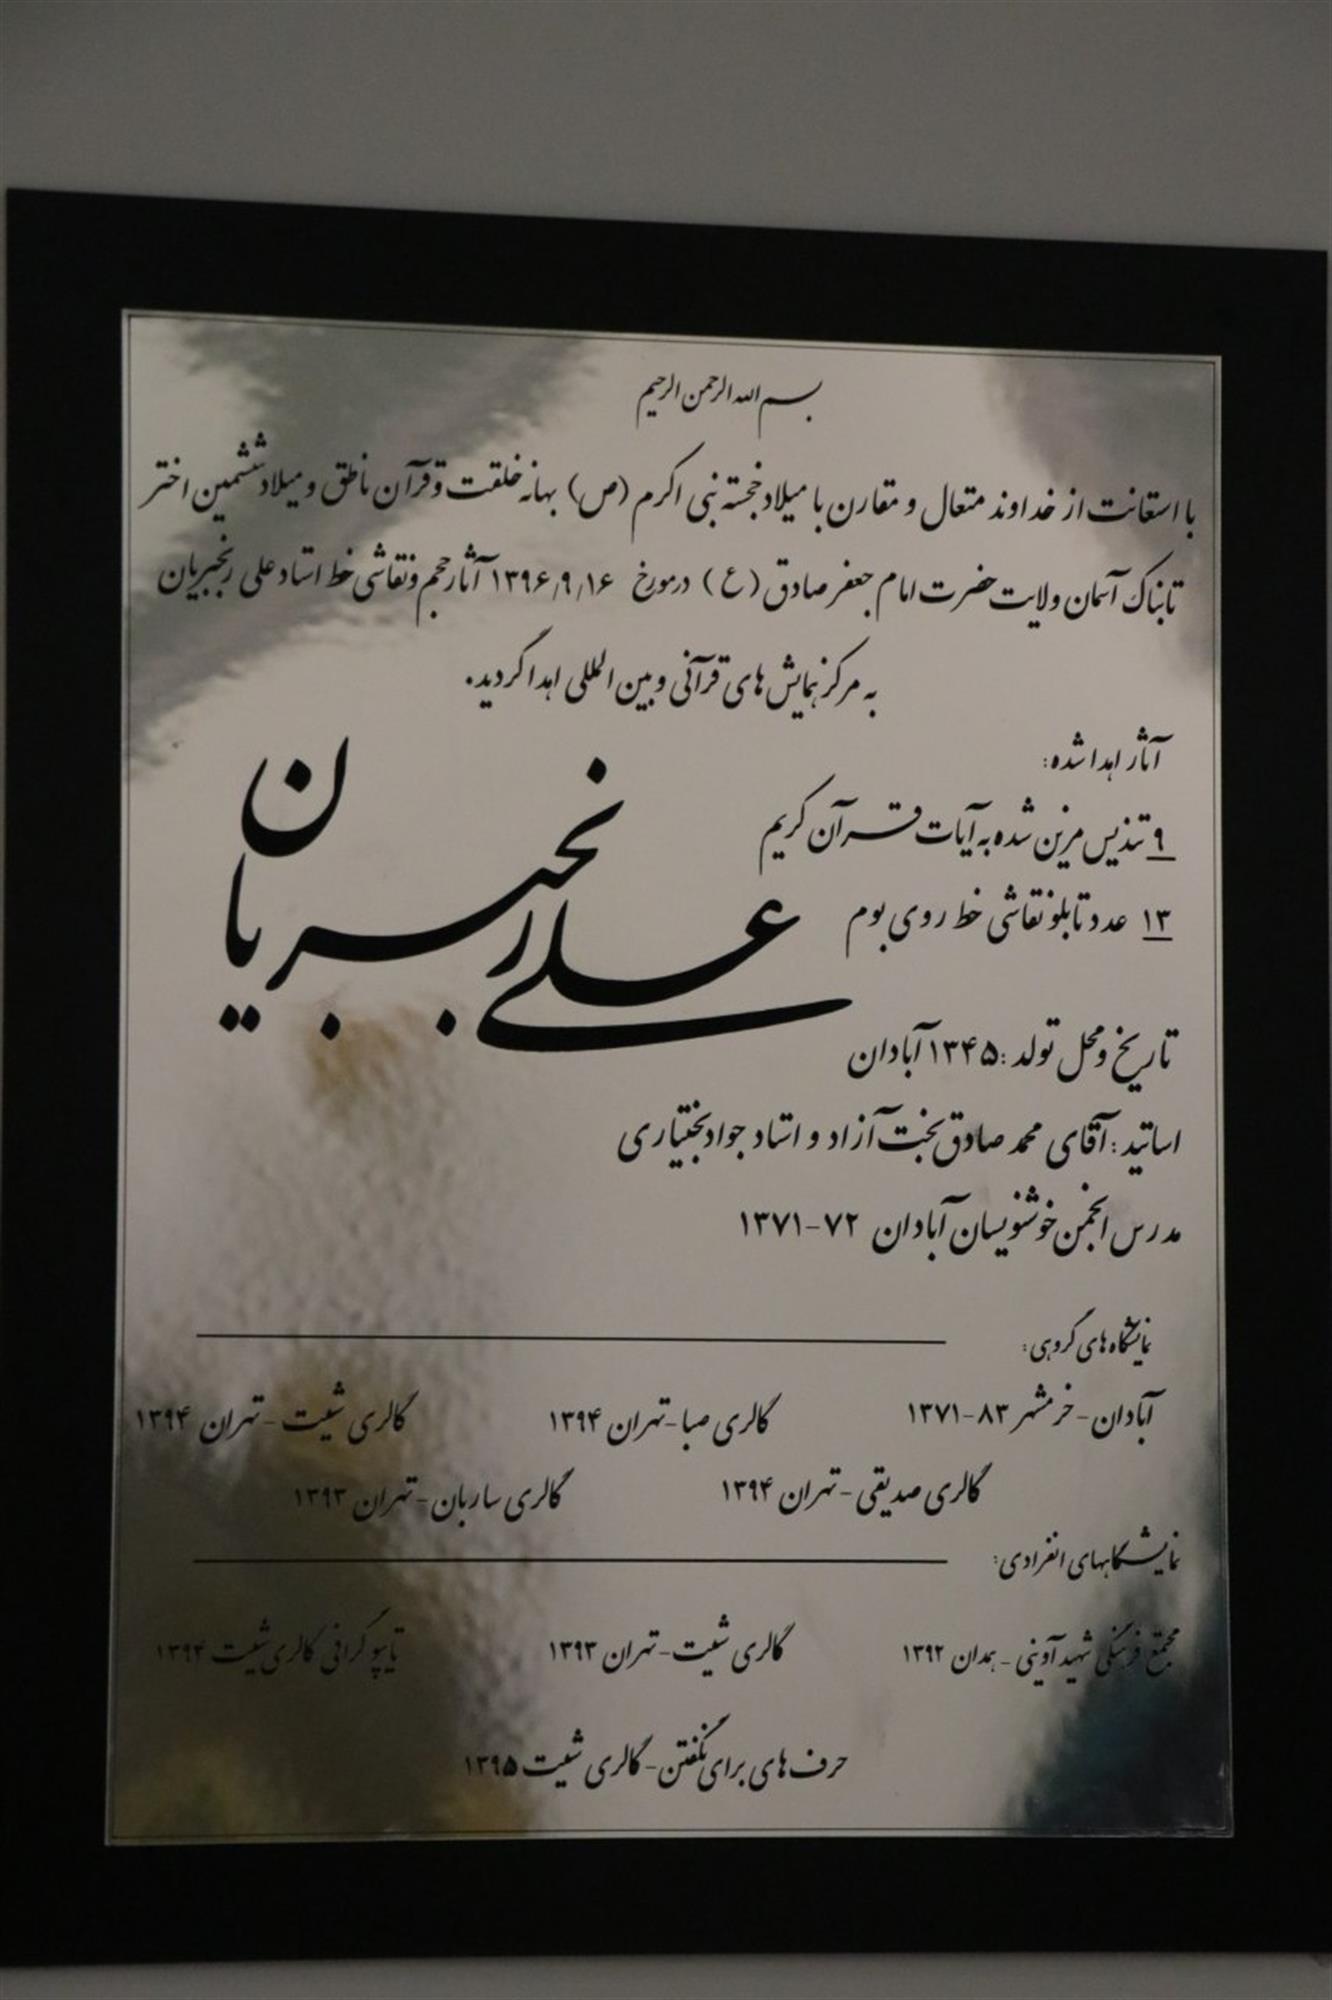 بسم الله الرحمن الرحیم
با استعانت از خداوند متعال و مقارن با میلاد خجسته نبی اکرم (ص) بهانه خلقت و قرآن ناطق و میلاد ششمین اختر
تابناک آسمان ولایت حضرت امام جعفر صادق (ع) در مورخ ۱۳۹۶/۹/۱۶ آثار حجم و نقاشی خط استاد علی رنجبریان
به مرکز همایش های قرآنی و بین المللی اهدا گردید.
آثار اهدا شده:
۹ تندیس مزین شده به آیات قرآن کریم
۱۳ عدد تابلو نقاشی خط روی بوم
علی رنجبریان
تاریخ و محل تولد: ۱۳۴۵ آبادان
اساتید: آقای محمد صادق بخت آزاد و استاد جواد بختیاری
مدرس انجمن خوشنویسان آبادان ۷۲-۱۳۷۱
نمایشگاه های گروهی:
آبادان - خرمشهر ۸۳-۱۳۷۱ گالری صبا - تهران ۱۳۹۴ گالری شیت - تهران ۱۳۹۴
گالری صدیقی - تهران ۱۳۹۴ گالری ساربان - تهران ۱۳۹۳
نمایشگاههای انفرادی:
مجتمع فرهنگی شهید آوینی - همدان ۱۳۹۲ گالری شیت - تهران ۱۳۹۳ تایپوگرافی گالری شیت ۱۳۹۴
حرف های برای نگفتن - گالری شیت ۱۳۹۵